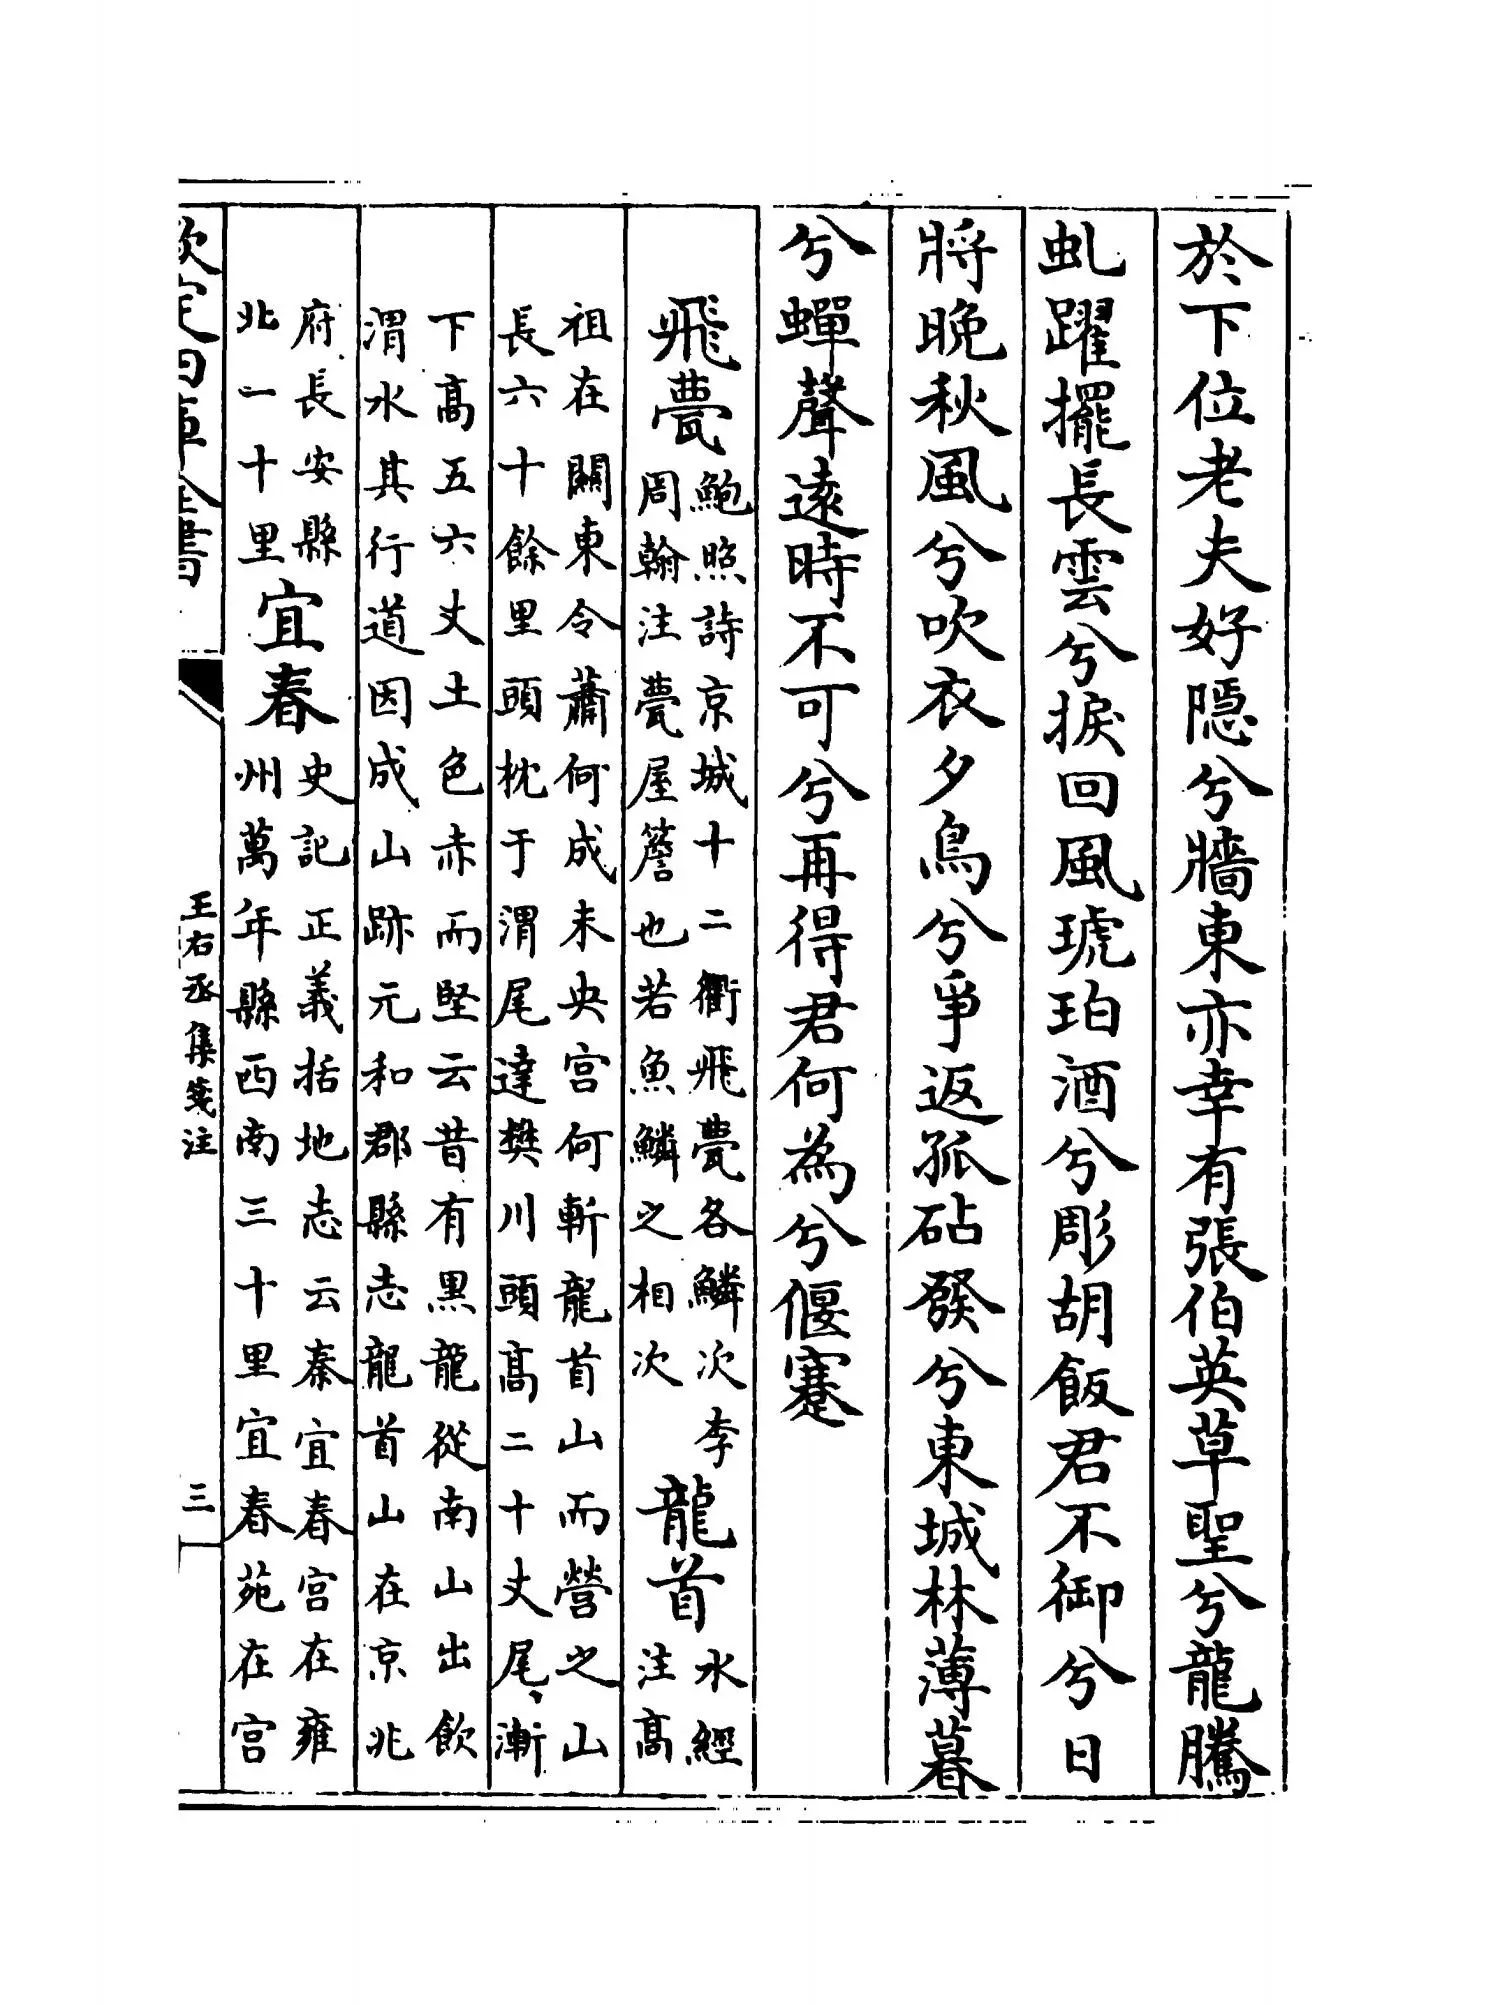 於下位老夫好隱兮牆東亦幸有張伯英草聖兮龍騰
虬躍擺長雲兮捩回風琥珀酒兮彫胡飯君不御兮日
將晚秋風兮吹衣夕鳥兮爭返孤砧發兮東城林薄暮
兮蟬聲遠時不可兮再得君何為兮偃蹇
飛甍
鮑照詩京城十二衢飛甍各鱗次李
周翰注甍屋簷也若魚鱗之相次
龍首
水經
注高
祖在關東令蕭何成未央宫何斬龍首山而營之山
長六十餘里頭枕于渭尾達樊川頭高二十丈尾漸
下高五六丈土色赤而堅云昔有黑龍從南山出飲
渭水其行道因成山跡元和郡縣志龍首山在京兆
府長安縣
北一十里
宜春
史記正義括地志云秦宜春宫在雍
州萬年縣西南三十里宜春苑在宫
欽定四庫全書
王右丞集箋注
三